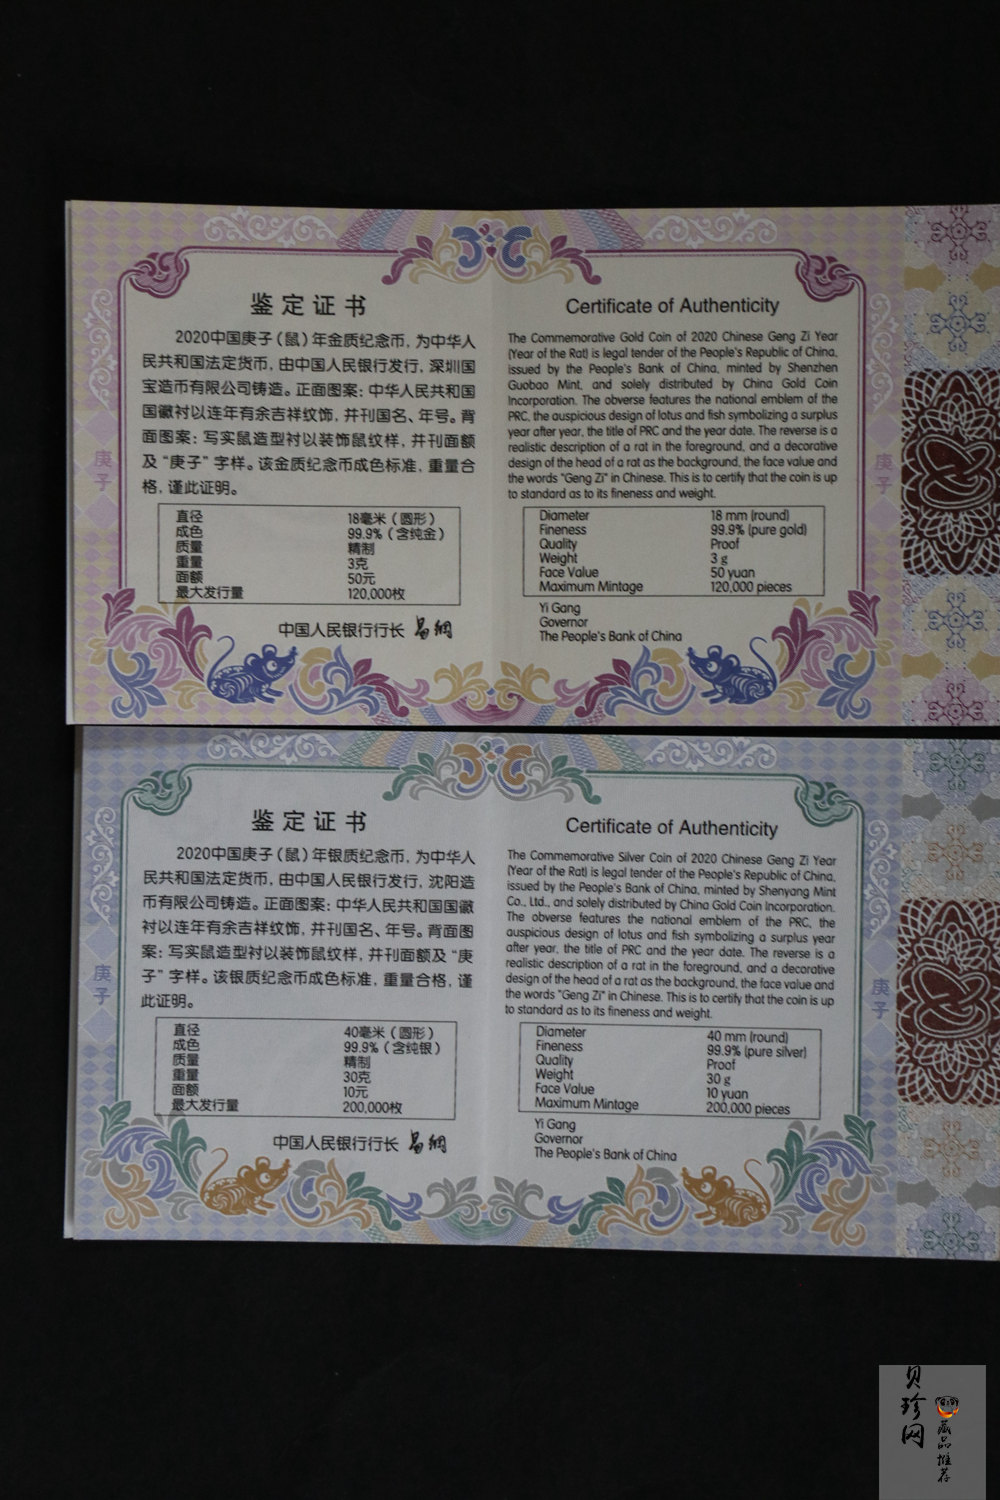 鉴定证书
2020中国庚子（鼠）年金质纪念币，为中华人
民共和国法定货币，由中国人民银行发行，深圳国
宝造币有限公司铸造。正面图案：中华人民共和国
国徽衬以连年有余吉祥纹饰，并刊国名、年号。背
面图案：写实鼠造型衬以装饰鼠纹样，并刊面额
及“庚子”字样。该金质纪念币成色标准，重量合
格，谨此证明。
直径 18毫米（圆形）
成色 99.9%（含纯金）
质量 精制
重量 3克
面额 50元
最大发行量 120,000枚
中国人民银行行长 易纲
庚子
Certificate of Authenticity
The Commemorative Gold Coin of 2020 Chinese Geng Zi Year
(Year of the Rat) is legal tender of the People's Republic of China,
issued by the People's Bank of China, minted by Shenzhen
Guobao Mint, and solely distributed by China Gold Coin
Incorporation. The obverse features the national emblem of the
PRC, the auspicious design of lotus and fish symbolizing a surplus
year after year, the title of PRC and the year date. The reverse is a
realistic description of a rat in the foreground, and a decorative
design of the head of a rat as the background, the face value and
the words "Geng Zi" in Chinese. This is to certify that the coin is up
to standard as to its fineness and weight.
Diameter 18 mm (round)
Fineness 99.9% (pure gold)
Quality Proof
Weight 3 g
Face Value 50 yuan
Maximum Mintage 120,000 pieces
Yi Gang
Governor
The People's Bank of China
庚子
鉴定证书
2020中国庚子（鼠）年银质纪念币，为中华人
民共和国法定货币，由中国人民银行发行，沈阳造
币有限公司铸造。正面图案：中华人民共和国国徽
衬以连年有余吉祥纹饰，并刊国名、年号。背面图
案：写实鼠造型衬以装饰鼠纹样，并刊面额及“庚
子”字样。该银质纪念币成色标准，重量合格，谨
此证明。
直径 40毫米（圆形）
成色 99.9%（含纯银）
质量 精制
重量 30克
面额 10元
最大发行量 200,000枚
中国人民银行行长 易纲
庚子
Certificate of Authenticity
The Commemorative Silver Coin of 2020 Chinese Geng Zi Year
(Year of the Rat) is legal tender of the People's Republic of China,
issued by the People's Bank of China, minted by Shenyang Mint
Co., Ltd., and solely distributed by China Gold Coin Incorporation.
The obverse features the national emblem of the PRC, the
auspicious design of lotus and fish symbolizing a surplus year
after year, the title of PRC and the year date. The reverse is a
realistic description of a rat in the foreground, and a decorative
design of the head of a rat as the background, the face value and
the words "Geng Zi" in Chinese. This is to certify that the coin is up
to standard as to its fineness and weight.
Diameter 40 mm (round)
Fineness 99.9% (pure silver)
Quality Proof
Weight 30 g
Face Value 10 yuan
Maximum Mintage 200,000 pieces
Yi Gang
Governor
The People's Bank of China
庚子
贝珍网
藏品推荐